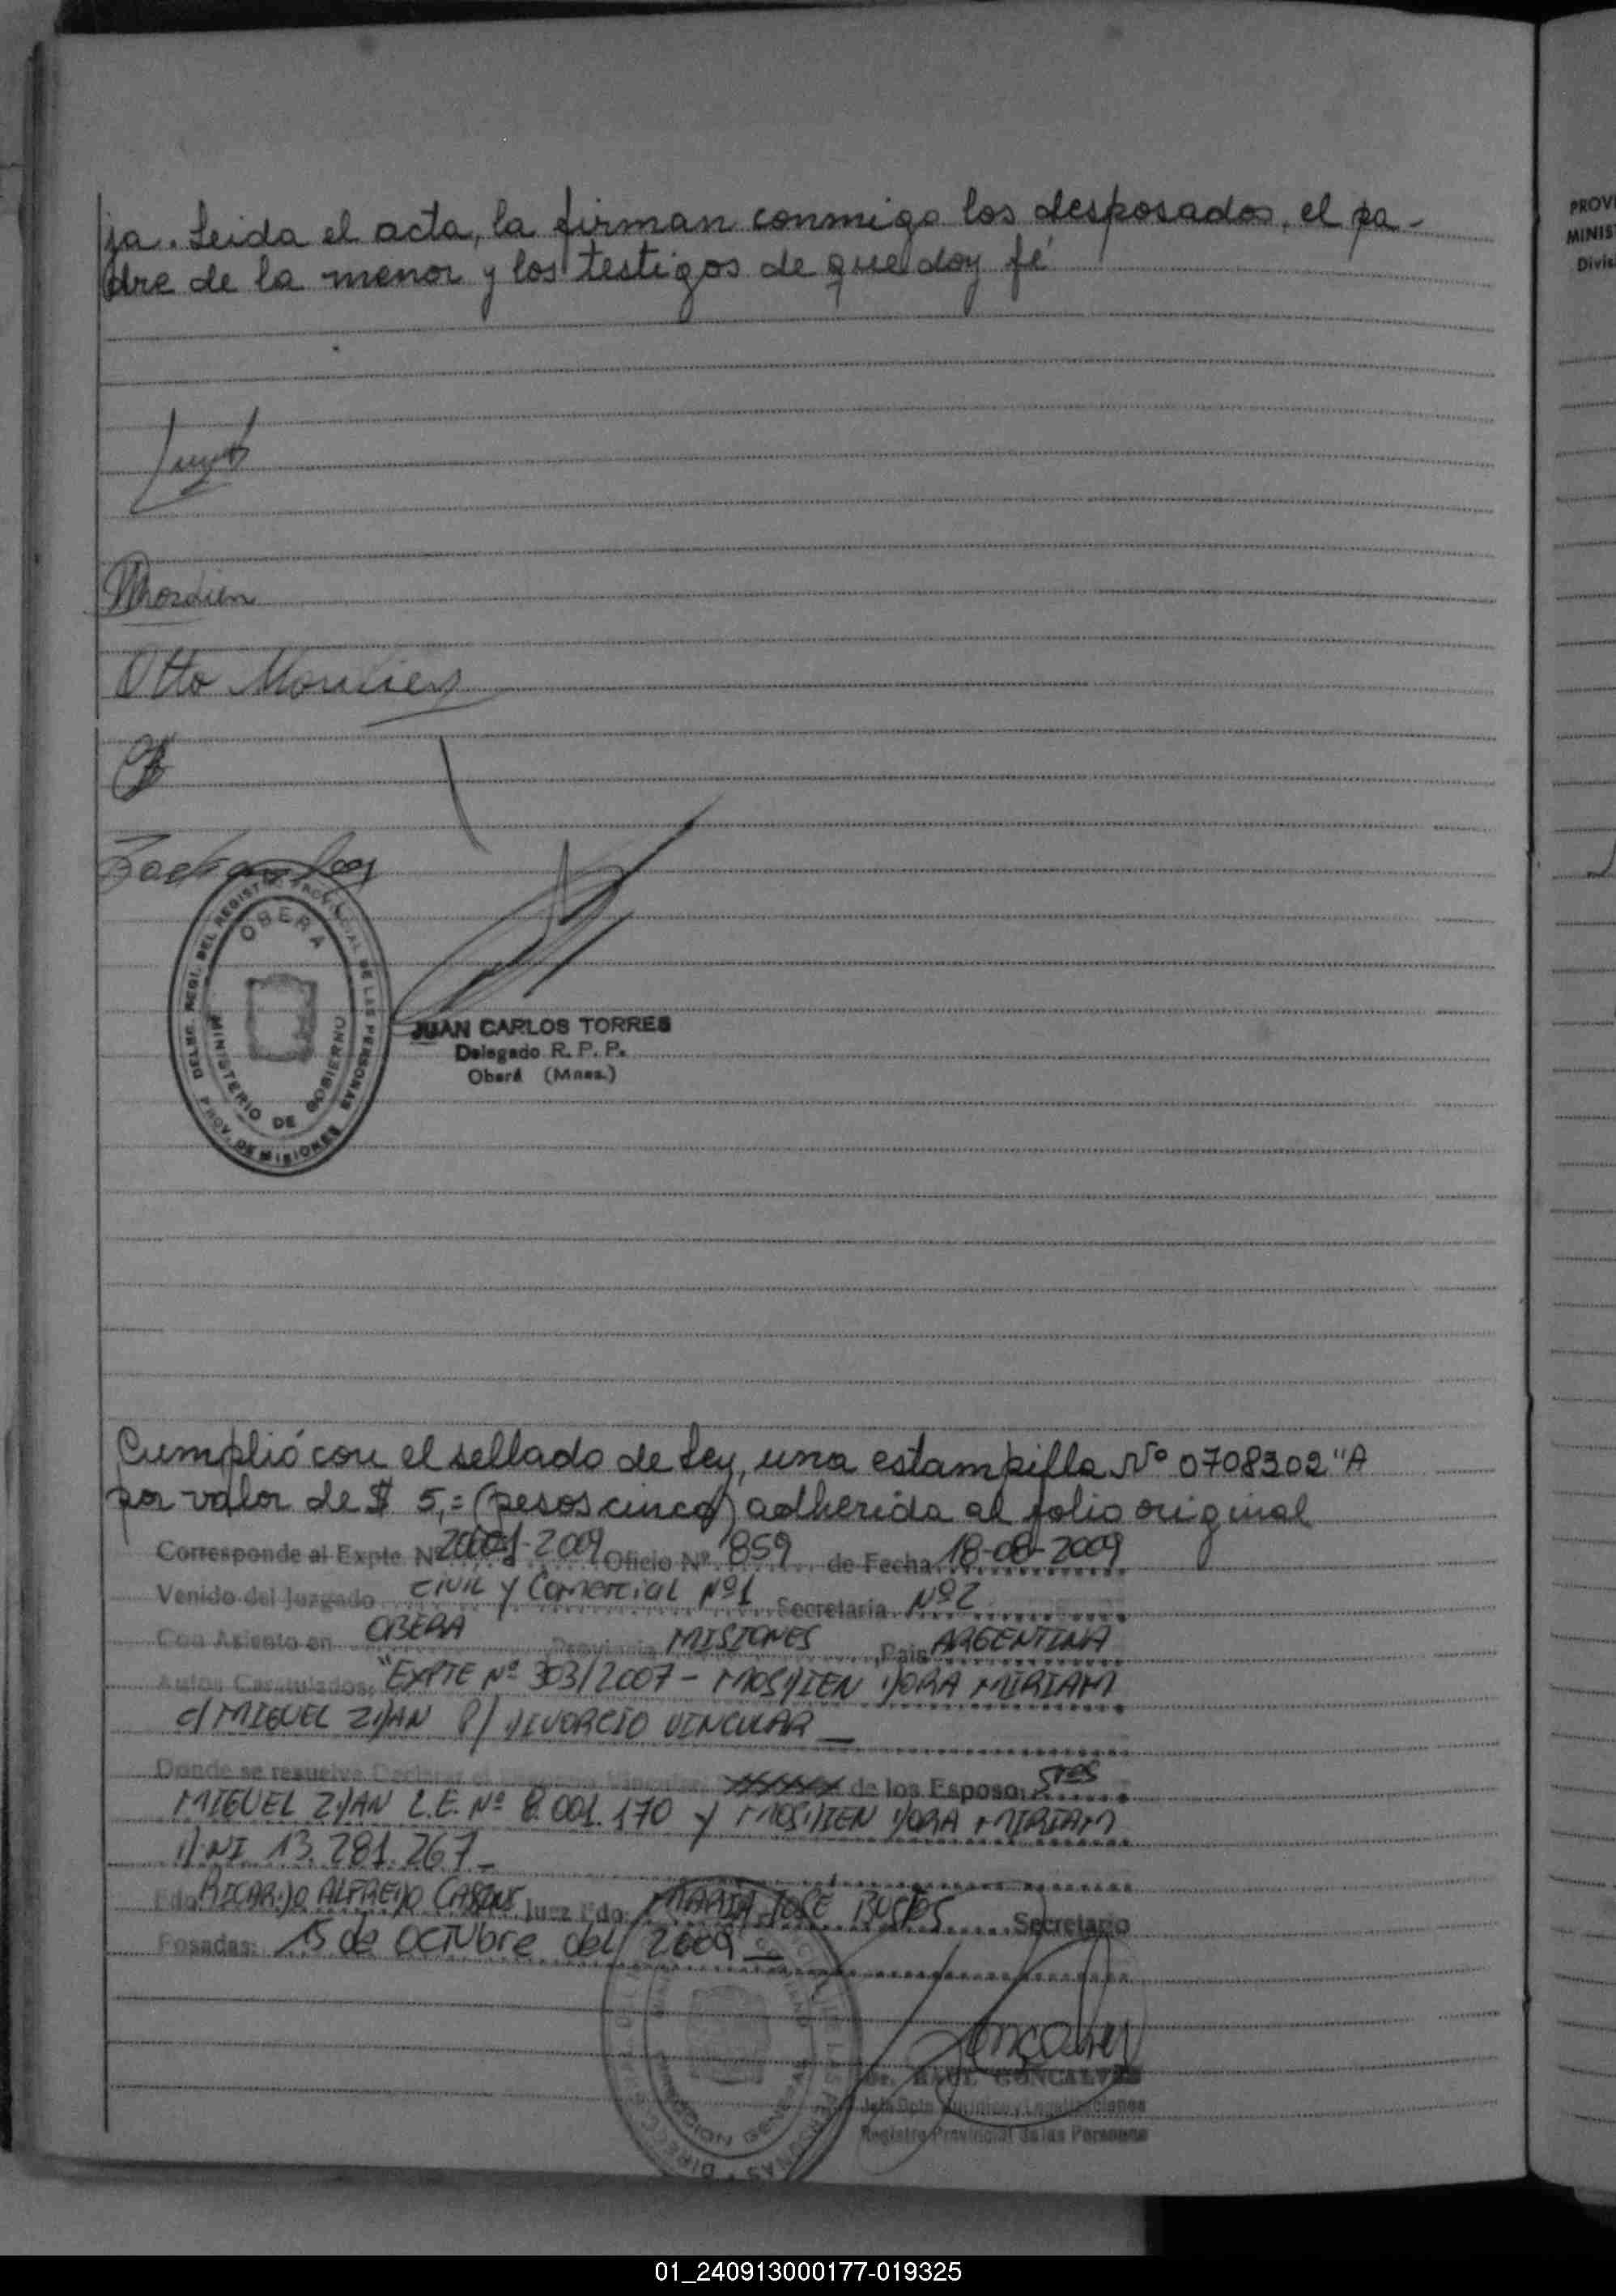 ja. Leida el acta, la firman conmigo los desposados, el pa-
dre de la menor y los testigos de que doy fé
Otto
OBERA
DELEG. REGI. DEL REGISTRO PROVINCIAL DE LAS PERSONAS
MINISTERIO DE GOBIERNO
PROV. DE MISIONES
JUAN CARLOS TORRES
Delegado R. P. P.
Oberá (Mnes.)
Cumplió con el sellado de Ley, una estampilla Nº 0708302 "A
por valor de $ 5,= (pesos cinco) adherida al folio original
Corresponde al Expte Nº 2009 Oficio Nº 859 de Fecha 18-08-2009
Venido del Juzgado CIVIL y Comercial Nº1 Secretaría Nº2
Con Asiento en OBERA Provincia MISIONES, Pais ARGENTINA
Autos Caratulados: "EXPTE Nº 303/2007 - MOSDIEN DORA MIRIAM
c/ MIGUEL ZDAN P/ DIVORCIO VINCULAR
Donde se resuelve Declarar el Vincular de los Esposo: Sres
MIGUEL ZDAN L.E. Nº 8.001.170 y MOSDIEN DORA MIRIAM
DNI 13.281.267-
Fdo. RICARDO ALFREDO CASONE Juez Fdo: MARIA JOSE BUSTOS Secretario
Posadas: 15 de OCTUBRE del 2009
Dr. RAUL GONCALVES
Jefe Dpto. Jurídico y Legalizaciones
Registro Provincial de las Personas
PROVI
MINIS
Divis
01_240913000177-019325